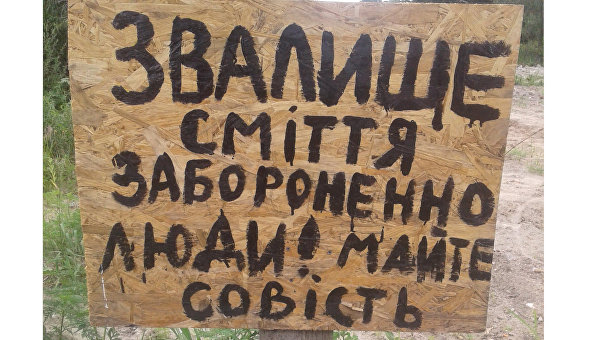 ЗВАЛИЩЕ
СМІТТЯ
ЗАБОРОНЕННО
ЛЮДИ! МАЙТЕ
СОВІСТЬ